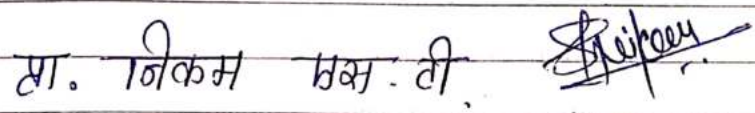 प्रा. निकम एस. टी.